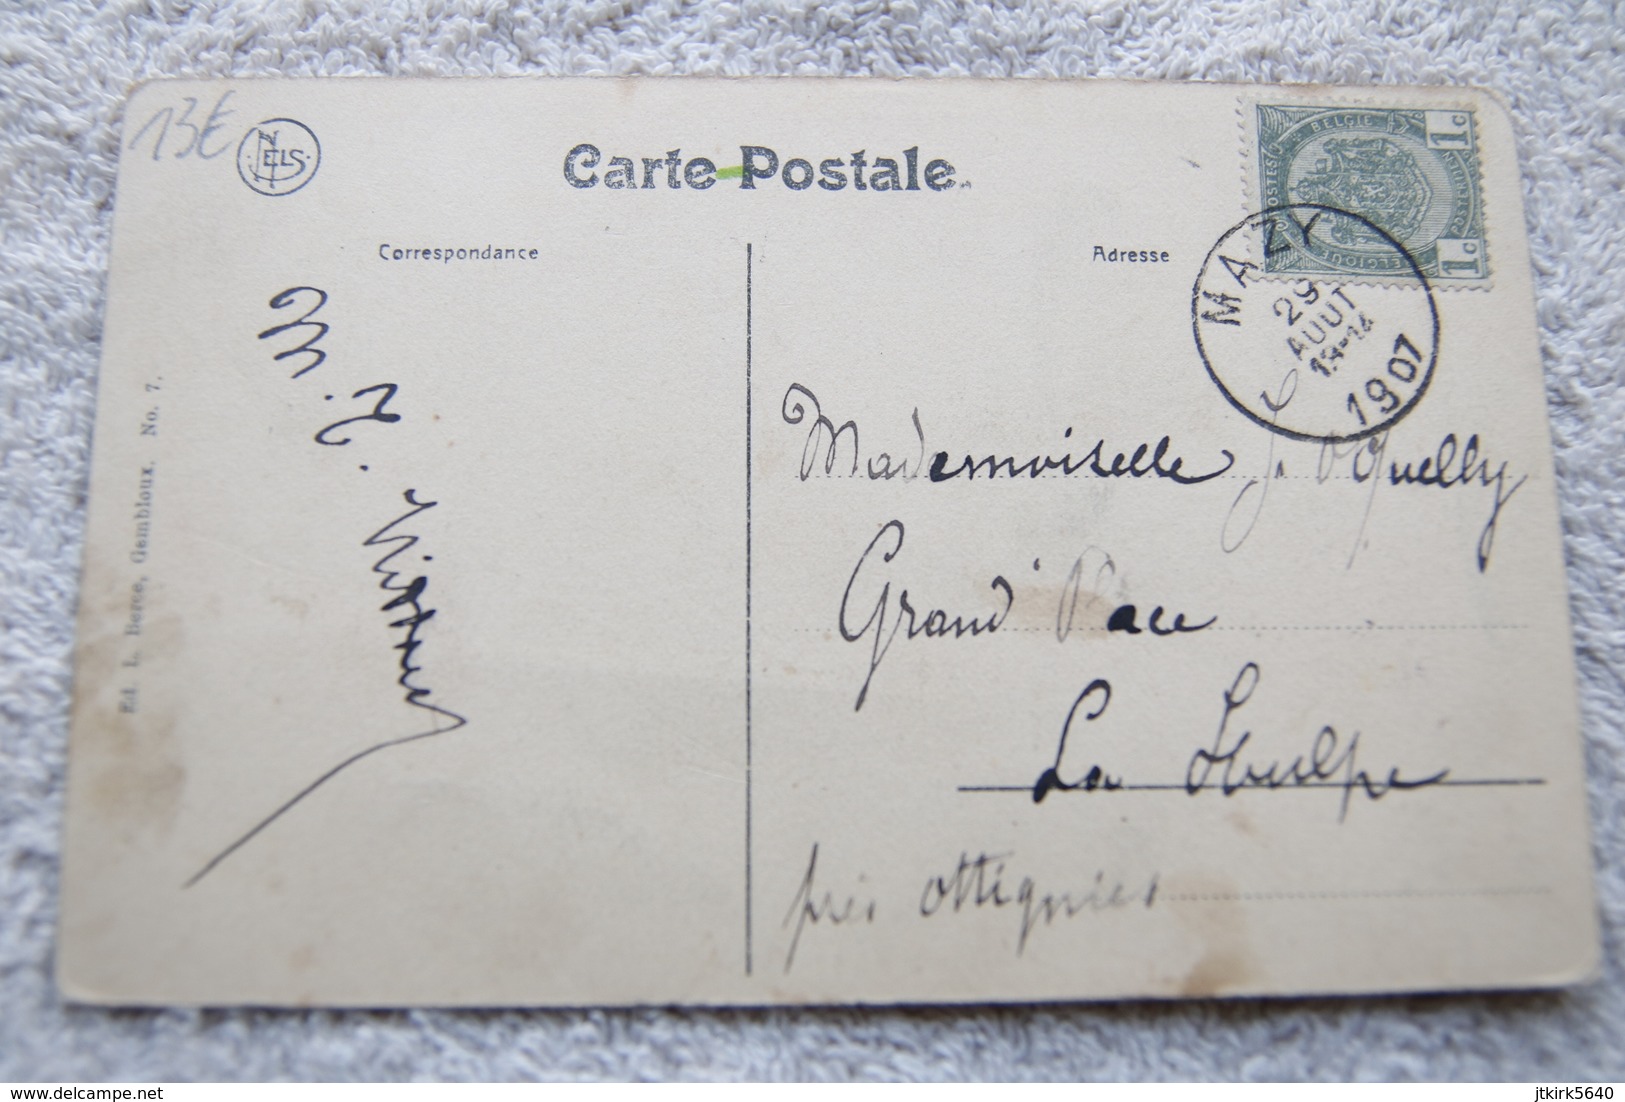 13€
NELS
Carte Postale
Correspondance
Adresse
1c
BELGIE
POSTES
BELGIQUE
1c
MAZY
29
AOUT
1907
Ed. L. Berce, Gembloux. No. 7.
M. T.
Mademoiselle J.
Grand Place
La Hulpe
près Ottignies
delcampe.net
jtkirk5640